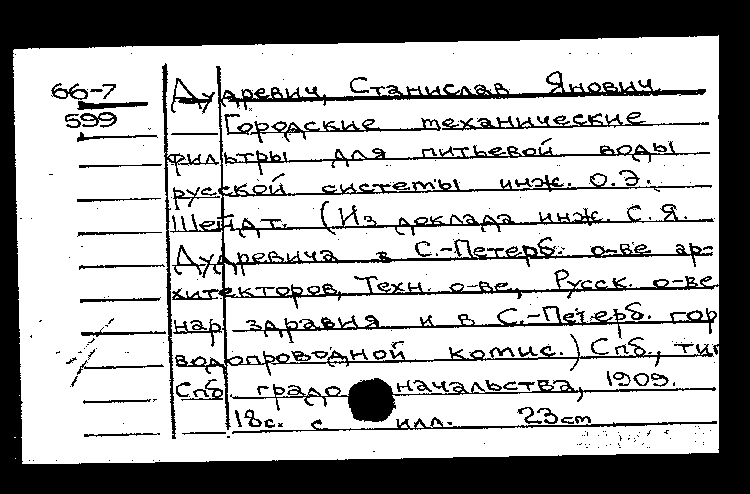 66-7 Дударевич, Станислав Янович
599 Городские механические
фильтры для питьевой воды
русской системы инж. О.Э.
Шейдт. (Из доклада инж. С.Я.
Дударевича в С.-Петерб. о-ве ар-
хитекторов, Техн. о-ве, Русск. о-ве
нар здравия и в С.-Петерб. гор
водопроводной комис.) Спб., тип
Спб градоначальства, 1909.
18с. с илл. 23cm